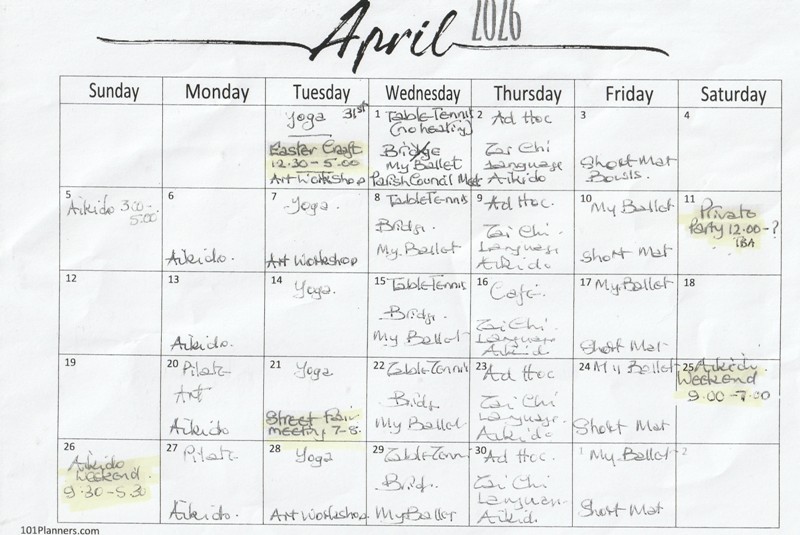 April 2026
Sunday Monday Tuesday Wednesday Thursday Friday Saturday
Yoga 31st
Easter Craft
12.30 - 5.00
Art Workshop
1 Table Tennis
(no heating)
Bridge
My Ballet
Parish Council Meet
2 Ad Hoc
Tai Chi
Language
Aikido
3
Short Mat
Bowls.
4
5
Aikido 3.00-
5.00
6
Aikido.
7
Yoga.
Art Workshop
8 Table Tennis
Bridge.
My Ballet
9 Ad Hoc.
Tai Chi.
Language
Aikido
10 My Ballet
Short Mat
11
Private
Party 12.00-?
TBA
12
13
Aikido.
14
Yoga.
15 Table Tennis
Bridge.
My Ballet
16
Café.
Tai Chi
Language
Aikido
17 My Ballet
Short Mat
18
19
20
Pilates
Art
Aikido
21
Yoga
Street Fair
meeting 7-8.
22
Table Tennis
Bridge
My Ballet
23
Ad Hoc
Tai Chi
Language.
Aikido
24 My Ballet
Short Mat
25 Aikido
Weekend
9.00 - 7.00
26
Aikido
Weekend
9.30 - 5.30
27
Pilates
Aikido.
28
Yoga
Art Workshop
29 Table Tennis
Bridge.
My Ballet
30 Ad Hoc.
Tai Chi
Language
Aikido.
1 My Ballet
Short Mat
2
101Planners.com